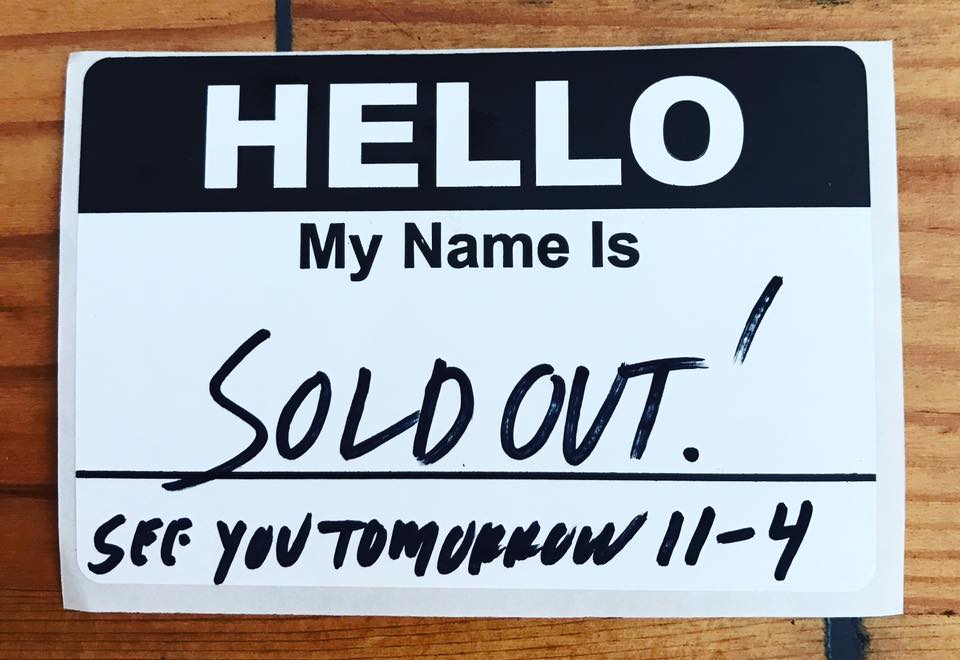 HELLO
My Name Is
SOLD OUT!
SEE YOU TOMORROW 11-4